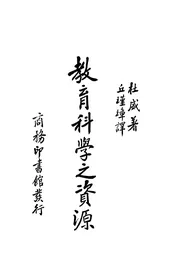 杜威著
丘瑾璋譯
教育科學之資源
商務印書館發行